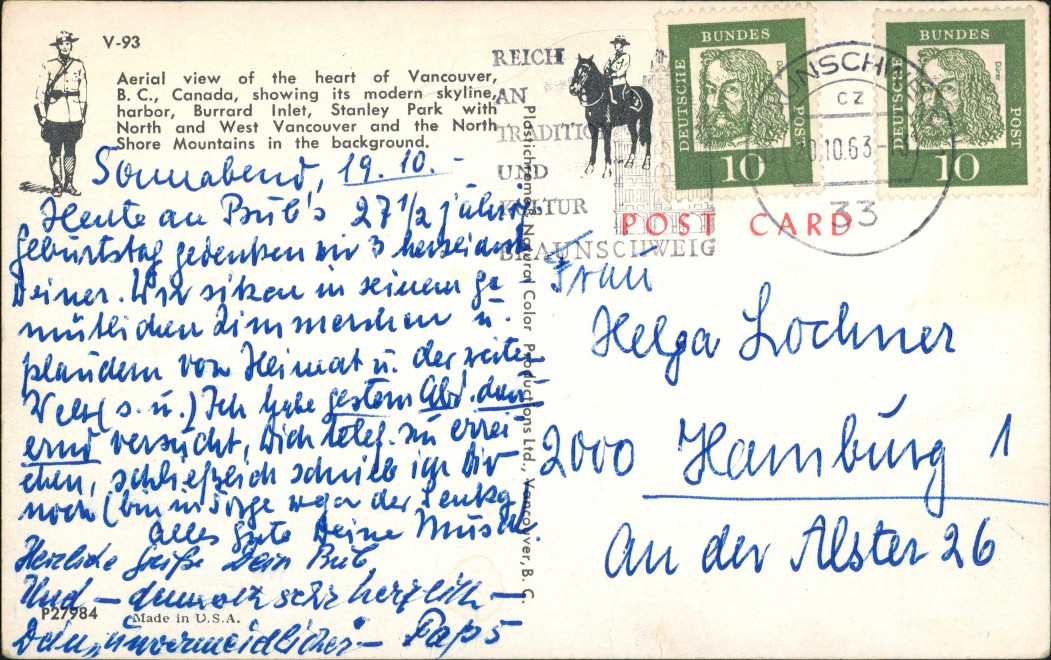 V-93
Aerial view of the heart of Vancouver,
B. C., Canada, showing its modern skyline,
harbor, Burrard Inlet, Stanley Park with
North and West Vancouver and the North
Shore Mountains in the background.
Sonnabend, 19.10.-
Heute an Bub's 27 1/2 jähr.
Geburtstag gedenken wir 3 vereint
Deiner. Wir sitzen in seinem ge-
mütlichen Zimmerchen u.
plaudern von Heimat u. der weiten
Welt (s. u.) Ich habe gestern Abd. dau-
ernd versucht, Dich telef. zu errei-
chen, schließlich schrieb ich Dir
noch (bin in Sorge wegen der
Alles Gute Deine
Herzliche Grüße Dein Bub,
Und – dennoch sehr herzlich –
Dein „unvermeidlicher" – Paps
P27984
Made in U.S.A.
Plastichrome Natural Color Productions Ltd., Vancouver, B. C.
REICH
AN
TRADITIO
UND
KULTUR
BRAUNSCHWEIG
DEUTSCHE
BUNDES
POST
Dürer
10
DEUTSCHE
BUNDES
POST
Dürer
10
UNSCHW
cz
10.63-
33
POST CARD
Frau
Helga Lochner
2000 Hamburg 1
An der Alster 26